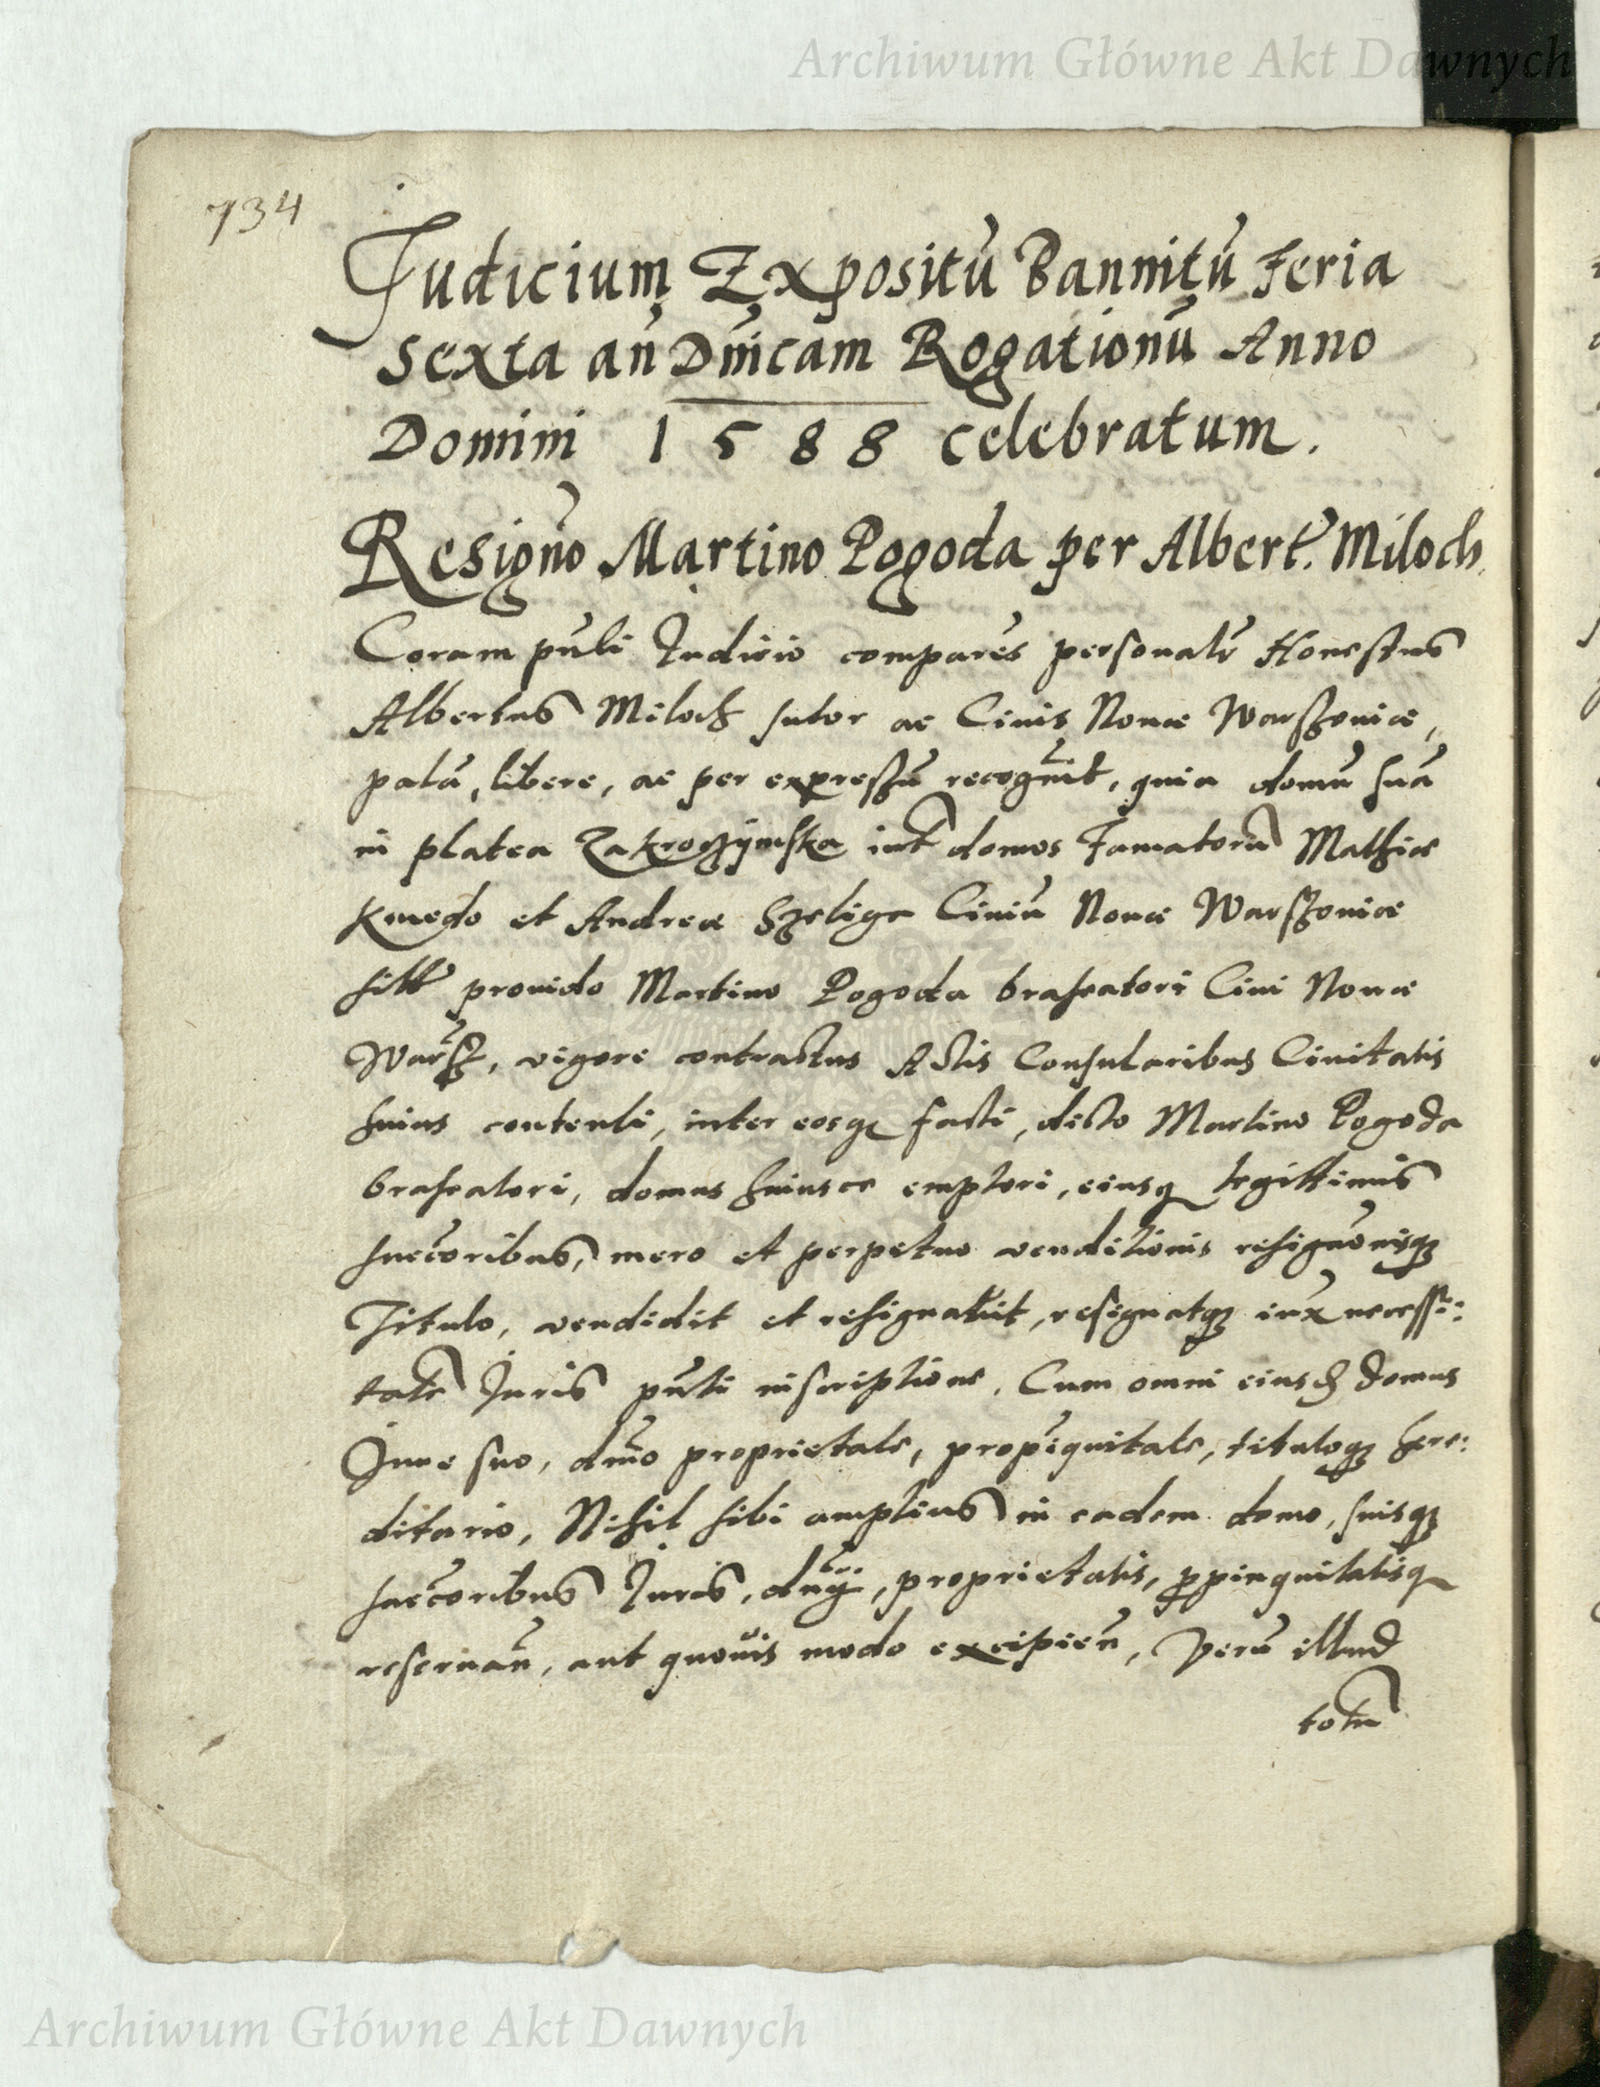 Archiwum Główne Akt Dawnych
734
Judicium Expositū Bannitū feria
sexta an̄ Dn̄icam Rogationū Anno
Domini 1588 celebratum.
Resigno Martino Pogoda per Albert. Miloch
Coram pn̄ti Judicio comparēs personalr̄ Honestus
Albertus Miloch sutor ac Civis Novae Warszoviae,
palā, libere, ac per expressū recognvit, quia domū suā
in platea Zakroczÿmska int domos Famatorū Mathiae
Kmedo et Andreae Szeliga Civiū Novae Warszoviae
sitt provido Martino Pogoda braseatori Civi Novae
Warsz, vigore contractus Actis Consularibus Civitatis
huius contenti, inter eosq facti, dicto Martino Pogoda
braseatori, domus huiusce emptori, eiusq legittimis
succōribus, mero et perpetuo venditionis resignōnisq
Titulo, vendidit et resignavit, resignatq iux necessi:
tate Juris pn̄ti inscriptione, Cum omni eiusd domus
Jure suo, dnīo proprietate, propīquitate, tituloq here:
ditario, Nihil sibi amplius in eadem domo, suisq
succōribus Juris, dnÿ, proprietatis, ppinquitatisq
reservan̄, aut quovis modo excipien̄, Verū illud
totū
Archiwum Główne Akt Dawnych